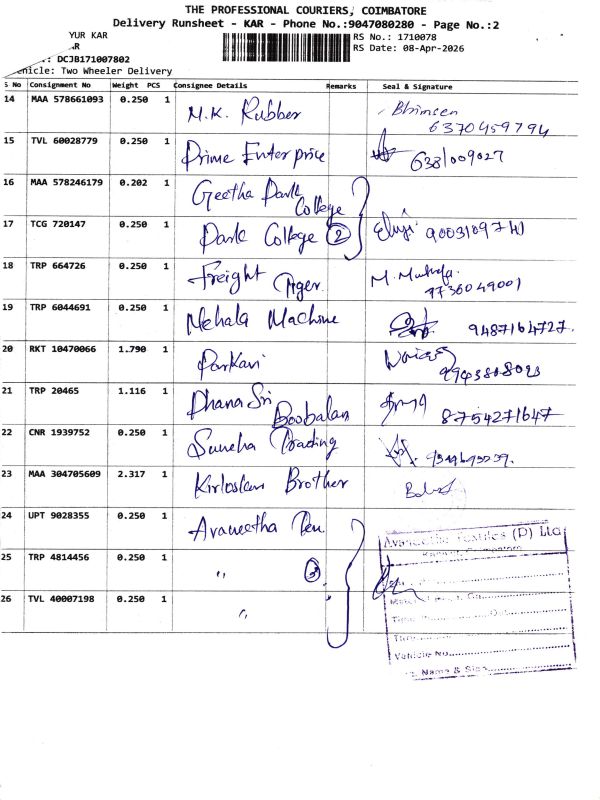 THE PROFESSIONAL COURIERS, COIMBATORE
Delivery Runsheet - KAR - Phone No.:9047080280 - Page No.:2
YUR KAR
RS No.: 1710078
RS Date: 08-Apr-2026
DCJB171007802
Vehicle: Two Wheeler Delivery
S No Consignment No Weight PCS Consignee Details Remarks Seal & Signature
14 MAA 578661093 0.250 1 M.K. Rubber Bhimsen
6370459794
15 TVL 60028779 0.250 1 Prime Enterprice 6381009027
16 MAA 578246179 0.202 1 Geetha Park
College
17 TCG 720147 0.250 1 Park College 2 9003109741
18 TRP 664726 0.250 1 Freight Tiger M. Muthu
9736049001
19 TRP 6044691 0.250 1 Mehala Machine 9487164727.
20 RKT 10470066 1.790 1
21 TRP 20465 1.116 1 Dhana Sri
Boobalan 8754271647
22 CNR 1939752 0.250 1 Trading
23 MAA 304705609 2.317 1 Kirloskar Brother
24 UPT 9028355 0.250 1 Avaneetha Tex
25 TRP 4814456 0.250 1 " 3
26 TVL 40007198 0.250 1 "
Avaneetha Textiles (P) Ltd
Vehicle No.
Name & Sign